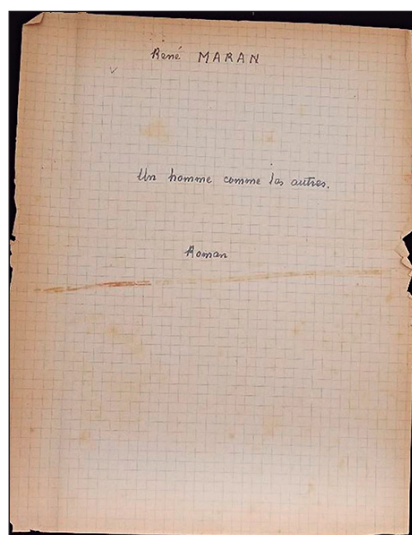 René MARAN
Un homme comme les autres.
Roman